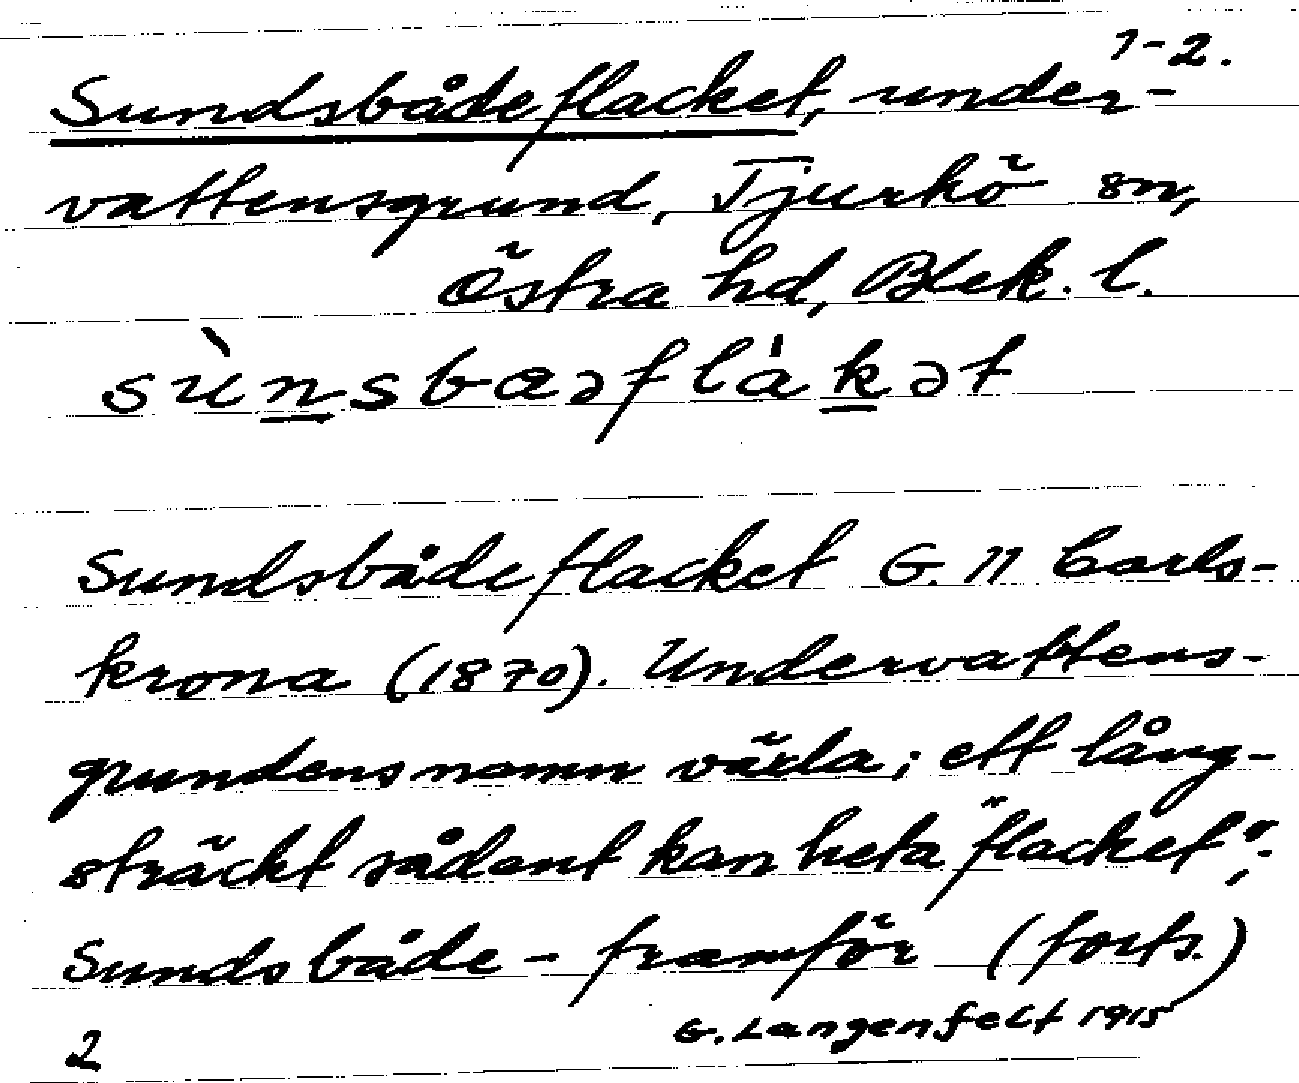 1-2.
Sundsbådeflacket, under-
vattensgrund, Tjurkö sn,
Östra hd, Blek. l.
sùnsbaəflàkət
Sundsbådeflacket G. 11 Carls-
krona (1870). Undervattens-
grundens namn växla; ett lång-
sträckt sådant kan heta "flacket";
Sundsbåde - framför (forts.)
G. Langenfelt 1915
2